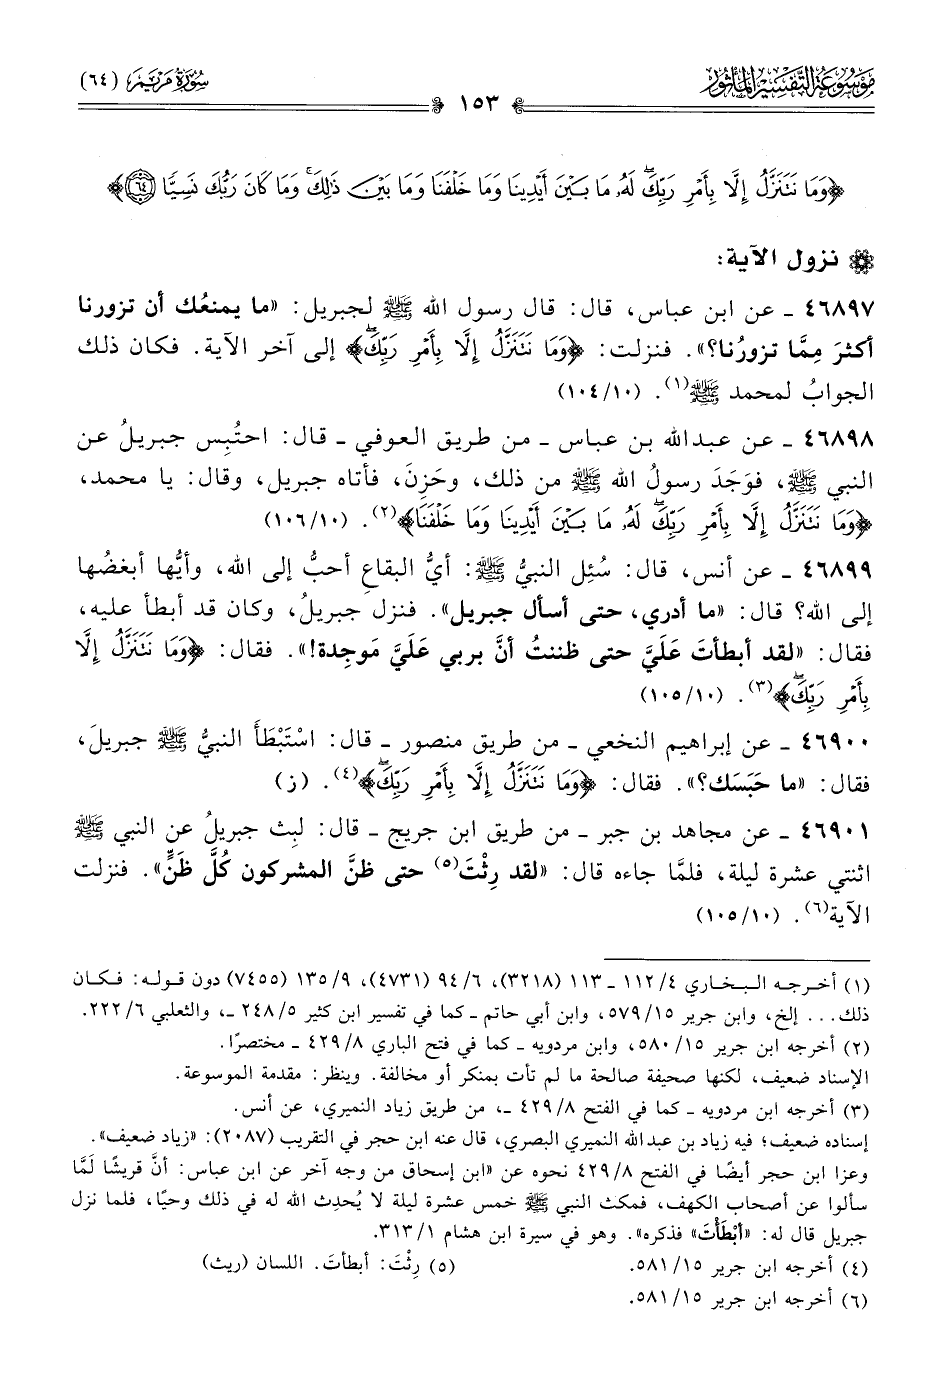 موسوعة التفسير المأثور
سورة مريم (٦٤)
١٥٣
﴿وَمَا نَتَنَزَّلُ إِلَّا بِأَمْرِ رَبِّكَ ۖ لَهُۥ مَا بَيْنَ أَيْدِينَا وَمَا خَلْفَنَا وَمَا بَيْنَ ذَٰلِكَ ۚ وَمَا كَانَ رَبُّكَ نَسِيًّا ٦٤﴾
نزول الآية:
٤٦٨٩٧ ـ عن ابن عباس، قال: قال رسول الله ﷺ لجبريل: «ما يمنعُك أن تزورنا
أكثرَ مِمَّا تزورُنا؟». فنزلت: ﴿وَمَا نَتَنَزَّلُ إِلَّا بِأَمْرِ رَبِّكَ ۖ﴾ إلى آخر الآية. فكان ذلك
الجوابُ لمحمد ﷺ(١). (١٠٤/١٠)
٤٦٨٩٨ ـ عن عبدالله بن عباس ـ من طريق العوفي ـ قال: احتُبِس جبريلُ عن
النبي ﷺ، فوَجَدَ رسولُ الله ﷺ من ذلك، وحَزِنَ، فأتاه جبريل، وقال: يا محمد،
﴿وَمَا نَتَنَزَّلُ إِلَّا بِأَمْرِ رَبِّكَ ۖ لَهُۥ مَا بَيْنَ أَيْدِينَا وَمَا خَلْفَنَا﴾(٢). (١٠٦/١٠)
٤٦٨٩٩ ـ عن أنس، قال: سُئِل النبيُّ ﷺ: أيُّ البقاعِ أحبُّ إلى الله، وأيُّها أبغضُها
إلى الله؟ قال: «ما أدري، حتى أسأل جبريل». فنزل جبريلُ، وكان قد أبطأ عليه،
فقال: «لقد أبطأتَ عَلَيَّ حتى ظننتُ أنَّ بربي عَلَيَّ مَوجِدة!». فقال: ﴿وَمَا نَتَنَزَّلُ إِلَّا
بِأَمْرِ رَبِّكَ ۖ﴾(٣). (١٠٥/١٠)
٤٦٩٠٠ ـ عن إبراهيم النخعي ـ من طريق منصور ـ قال: اسْتَبْطَأَ النبيُّ ﷺ جبريلَ،
فقال: «ما حَبَسَك؟». فقال: ﴿وَمَا نَتَنَزَّلُ إِلَّا بِأَمْرِ رَبِّكَ ۖ﴾(٤). (ز)
٤٦٩٠١ ـ عن مجاهد بن جبر ـ من طريق ابن جريج ـ قال: لبِث جبريلُ عن النبي ﷺ
اثنتي عشرة ليلة، فلمَّا جاءه قال: «لقد رِثْتَ(٥) حتى ظنَّ المشركون كُلَّ ظَنٍّ». فنزلت
الآية(٦). (١٠٥/١٠)
(١) أخرجه البخاري ٤/ ١١٢ ـ ١١٣ (٣٢١٨)، ٦/ ٩٤ (٤٧٣١)، ٩/ ١٣٥ (٧٤٥٥) دون قوله: فكان
ذلك... إلخ، وابن جرير ١٥/ ٥٧٩، وابن أبي حاتم ـ كما في تفسير ابن كثير ٥/ ٢٤٨ ـ، والثعلبي ٦/ ٢٢٢.
(٢) أخرجه ابن جرير ١٥/ ٥٨٠، وابن مردويه ـ كما في فتح الباري ٨/ ٤٢٩ ـ مختصرًا.
الإسناد ضعيف، لكنها صحيفة صالحة ما لم تأت بمنكر أو مخالفة. وينظر: مقدمة الموسوعة.
(٣) أخرجه ابن مردويه ـ كما في الفتح ٨/ ٤٢٩ ـ، من طريق زياد النميري، عن أنس.
إسناده ضعيف؛ فيه زياد بن عبدالله النميري البصري، قال عنه ابن حجر في التقريب (٢٠٨٧): «زياد ضعيف».
وعزا ابن حجر أيضًا في الفتح ٨/ ٤٢٩ نحوه عن «ابن إسحاق من وجه آخر عن ابن عباس: أنَّ قريشًا لَمَّا
سألوا عن أصحاب الكهف، فمكث النبي ﷺ خمس عشرة ليلة لا يُحدِث الله له في ذلك وحيًا، فلما نزل
جبريل قال له: «أبْطَأْتَ» فذكره». وهو في سيرة ابن هشام ١/ ٣١٣.
(٤) أخرجه ابن جرير ١٥/ ٥٨١.
(٥) رِثْتَ: أبطأتَ. اللسان (ريث)
(٦) أخرجه ابن جرير ١٥/ ٥٨١.